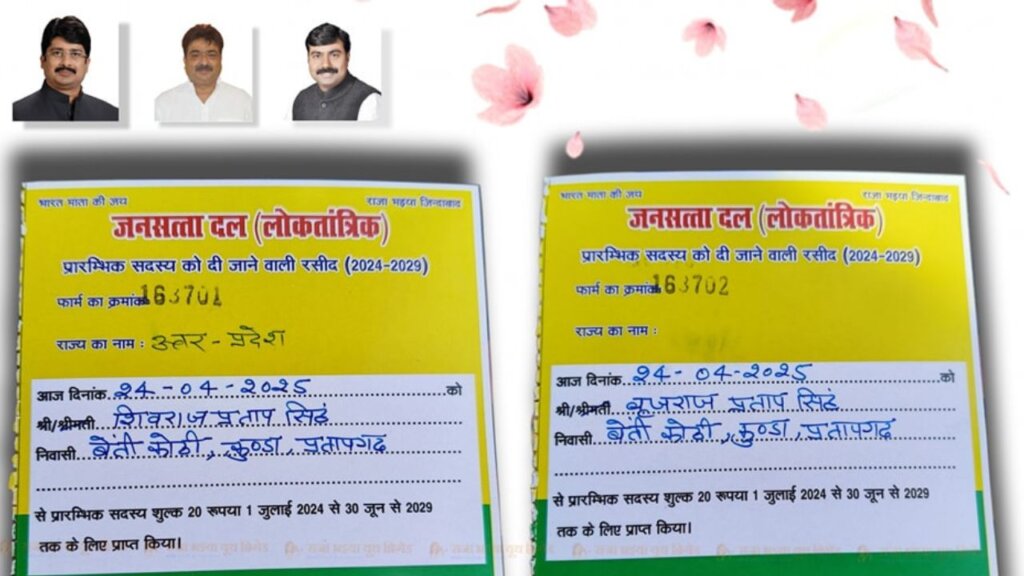 भारत माता की जय
राजा भइया ज़िन्दाबाद
जनसत्ता दल (लोकतांत्रिक)
प्रारम्भिक सदस्य को दी जाने वाली रसीद (2024-2029)
फार्म का क्रमांक 163701
राज्य का नाम : उत्तर - प्रदेश
आज दिनांक 24-04-2025 को
श्री/श्रीमती शिवराज प्रताप सिंह
निवासी बेंती कोठी, कुण्डा, प्रतापगढ़
से प्रारम्भिक सदस्य शुल्क 20 रूपया 1 जुलाई 2024 से 30 जून से 2029
तक के लिए प्राप्त किया।
भारत माता की जय
राजा भइया ज़िन्दाबाद
जनसत्ता दल (लोकतांत्रिक)
प्रारम्भिक सदस्य को दी जाने वाली रसीद (2024-2029)
फार्म का क्रमांक 163702
राज्य का नाम :
आज दिनांक 24-04-2025 को
श्री/श्रीमती बृजराज प्रताप सिंह
निवासी बेंती कोठी, कुण्डा, प्रतापगढ़
से प्रारम्भिक सदस्य शुल्क 20 रूपया 1 जुलाई 2024 से 30 जून से 2029
तक के लिए प्राप्त किया।
राजा भइया यूथ ब्रिगेड